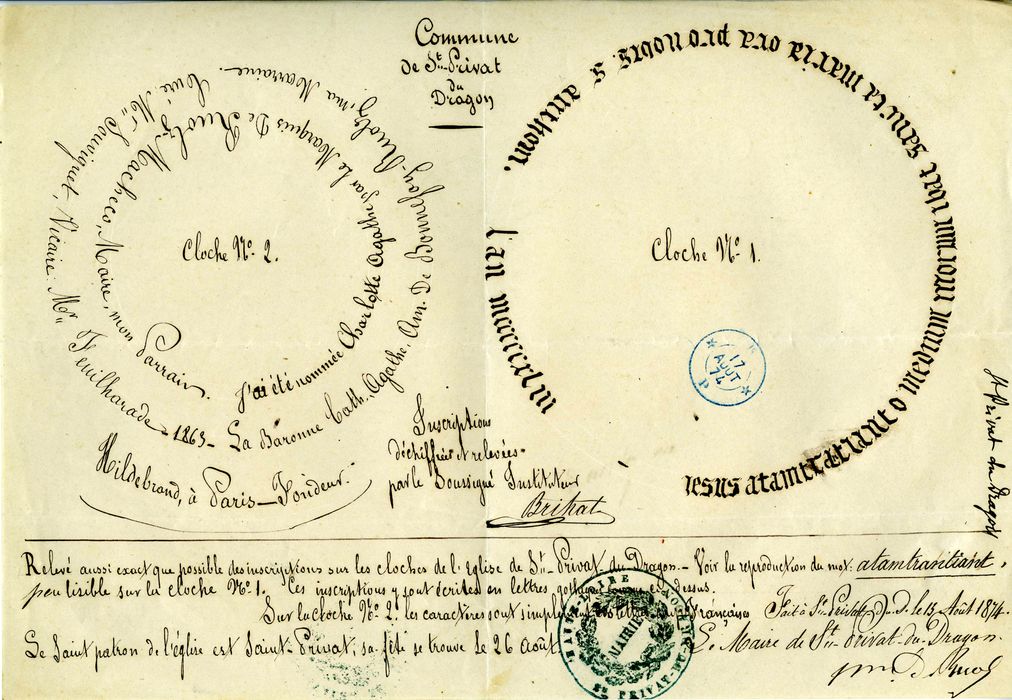 Commune
de St. Privat
du
Dragon
Cloche No. 2.
J'ai été nommée Charlotte Agathe par Le Marquis De Ruolz-
Macheco, Maire, mon Parrain.
La Baronne Cath. Agathe. Am. De Bonnefoy-Ruolz, ma Marraine.
Curé Mr. Souvignet, Vicaire Mr. Feuilharade - 1863 -
Hildebrand, à Paris - Fondeur.
Cloche No. 1.
l'an mccccxl iiii
iesus atamtrantiant o medium illorum ibat sancta maria ora pro nobis s anthoni.
17
AOUT
74
St Privat du Dragon
Inscriptions
déchiffrées et relevées
par le Soussigné Instituteur
Brihat
Relevé aussi exact que possible des inscriptions sur les cloches de l'église de St. Privat du Dragon - Voir la reproduction du mot: atamtrantiant,
peu lisible sur la cloche No. 1. Ces inscriptions y sont écrites en lettres gothiques comme ci-dessus.
Sur la cloche No. 2. les caractères sont simplement en lettres françaises
Fait à St. Privat d. D. le 15 Août 1874.
Le Maire de St. Privat-du-Dragon
Le Saint patron de l'église est Saint-Privat; sa fête se trouve le 26 Août
MAIRIE
ST PRIVAT-DU-